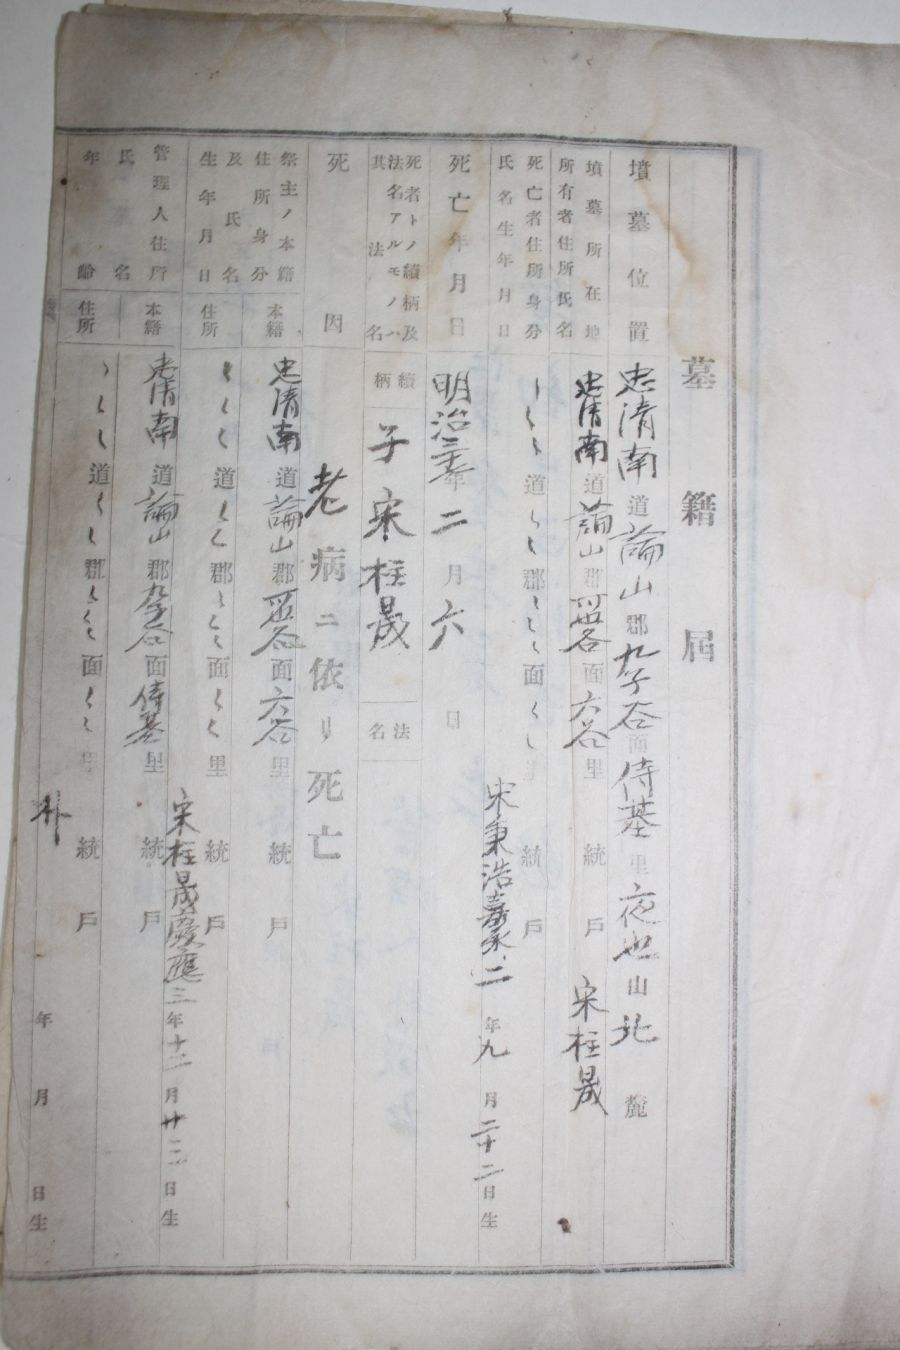 墓籍届
墳墓位置 忠清南道論山郡九子谷面侍基里夜也山北麓
墳墓所在地
所有者住所氏名 忠清南道論山郡 面六谷里 統 戶 宋柱晟
死亡者住所身分
氏名生年月日 〻〻〻道〻〻郡〻〻〻面〻〻里 統 戶 宋秉浩嘉永二年九月二十二日生
死亡年月日 明治 年二月六日
死者トノ續柄及
法名アルモノハ
其法名 續柄 子宋柱晟 法名
死因 老病ニ依リ死亡
祭主ノ本籍
住所身分
及氏名
生年月日
本籍 忠清南道論山郡 面六谷里 統 戶
住所 〻〻〻道〻〻郡〻〻〻面〻〻里 統 戶
宋柱晟慶應三年十二月廿二日生
管理人住所
氏名
年齡
本籍 忠清南道論山郡九子谷面侍基里 統 戶
住所 〻〻〻道〻〻郡〻〻〻面〻〻里 統 戶
朴 年 月 日生